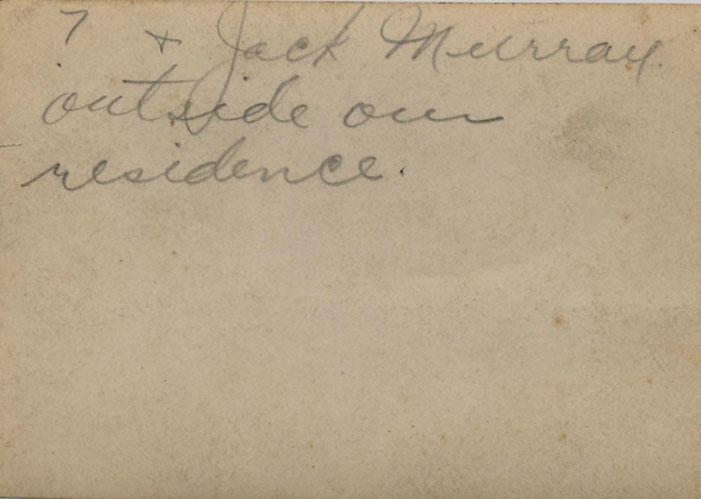 7 + Jack Murray
outside our
residence.